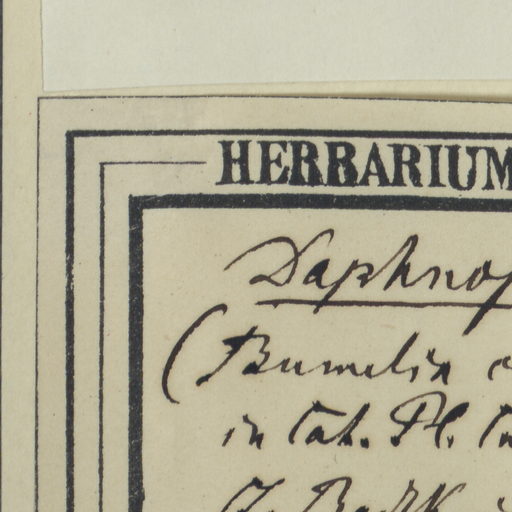 HERBARIUM
Daphnop
(Bumelia c
in Cat. Pl. Cu